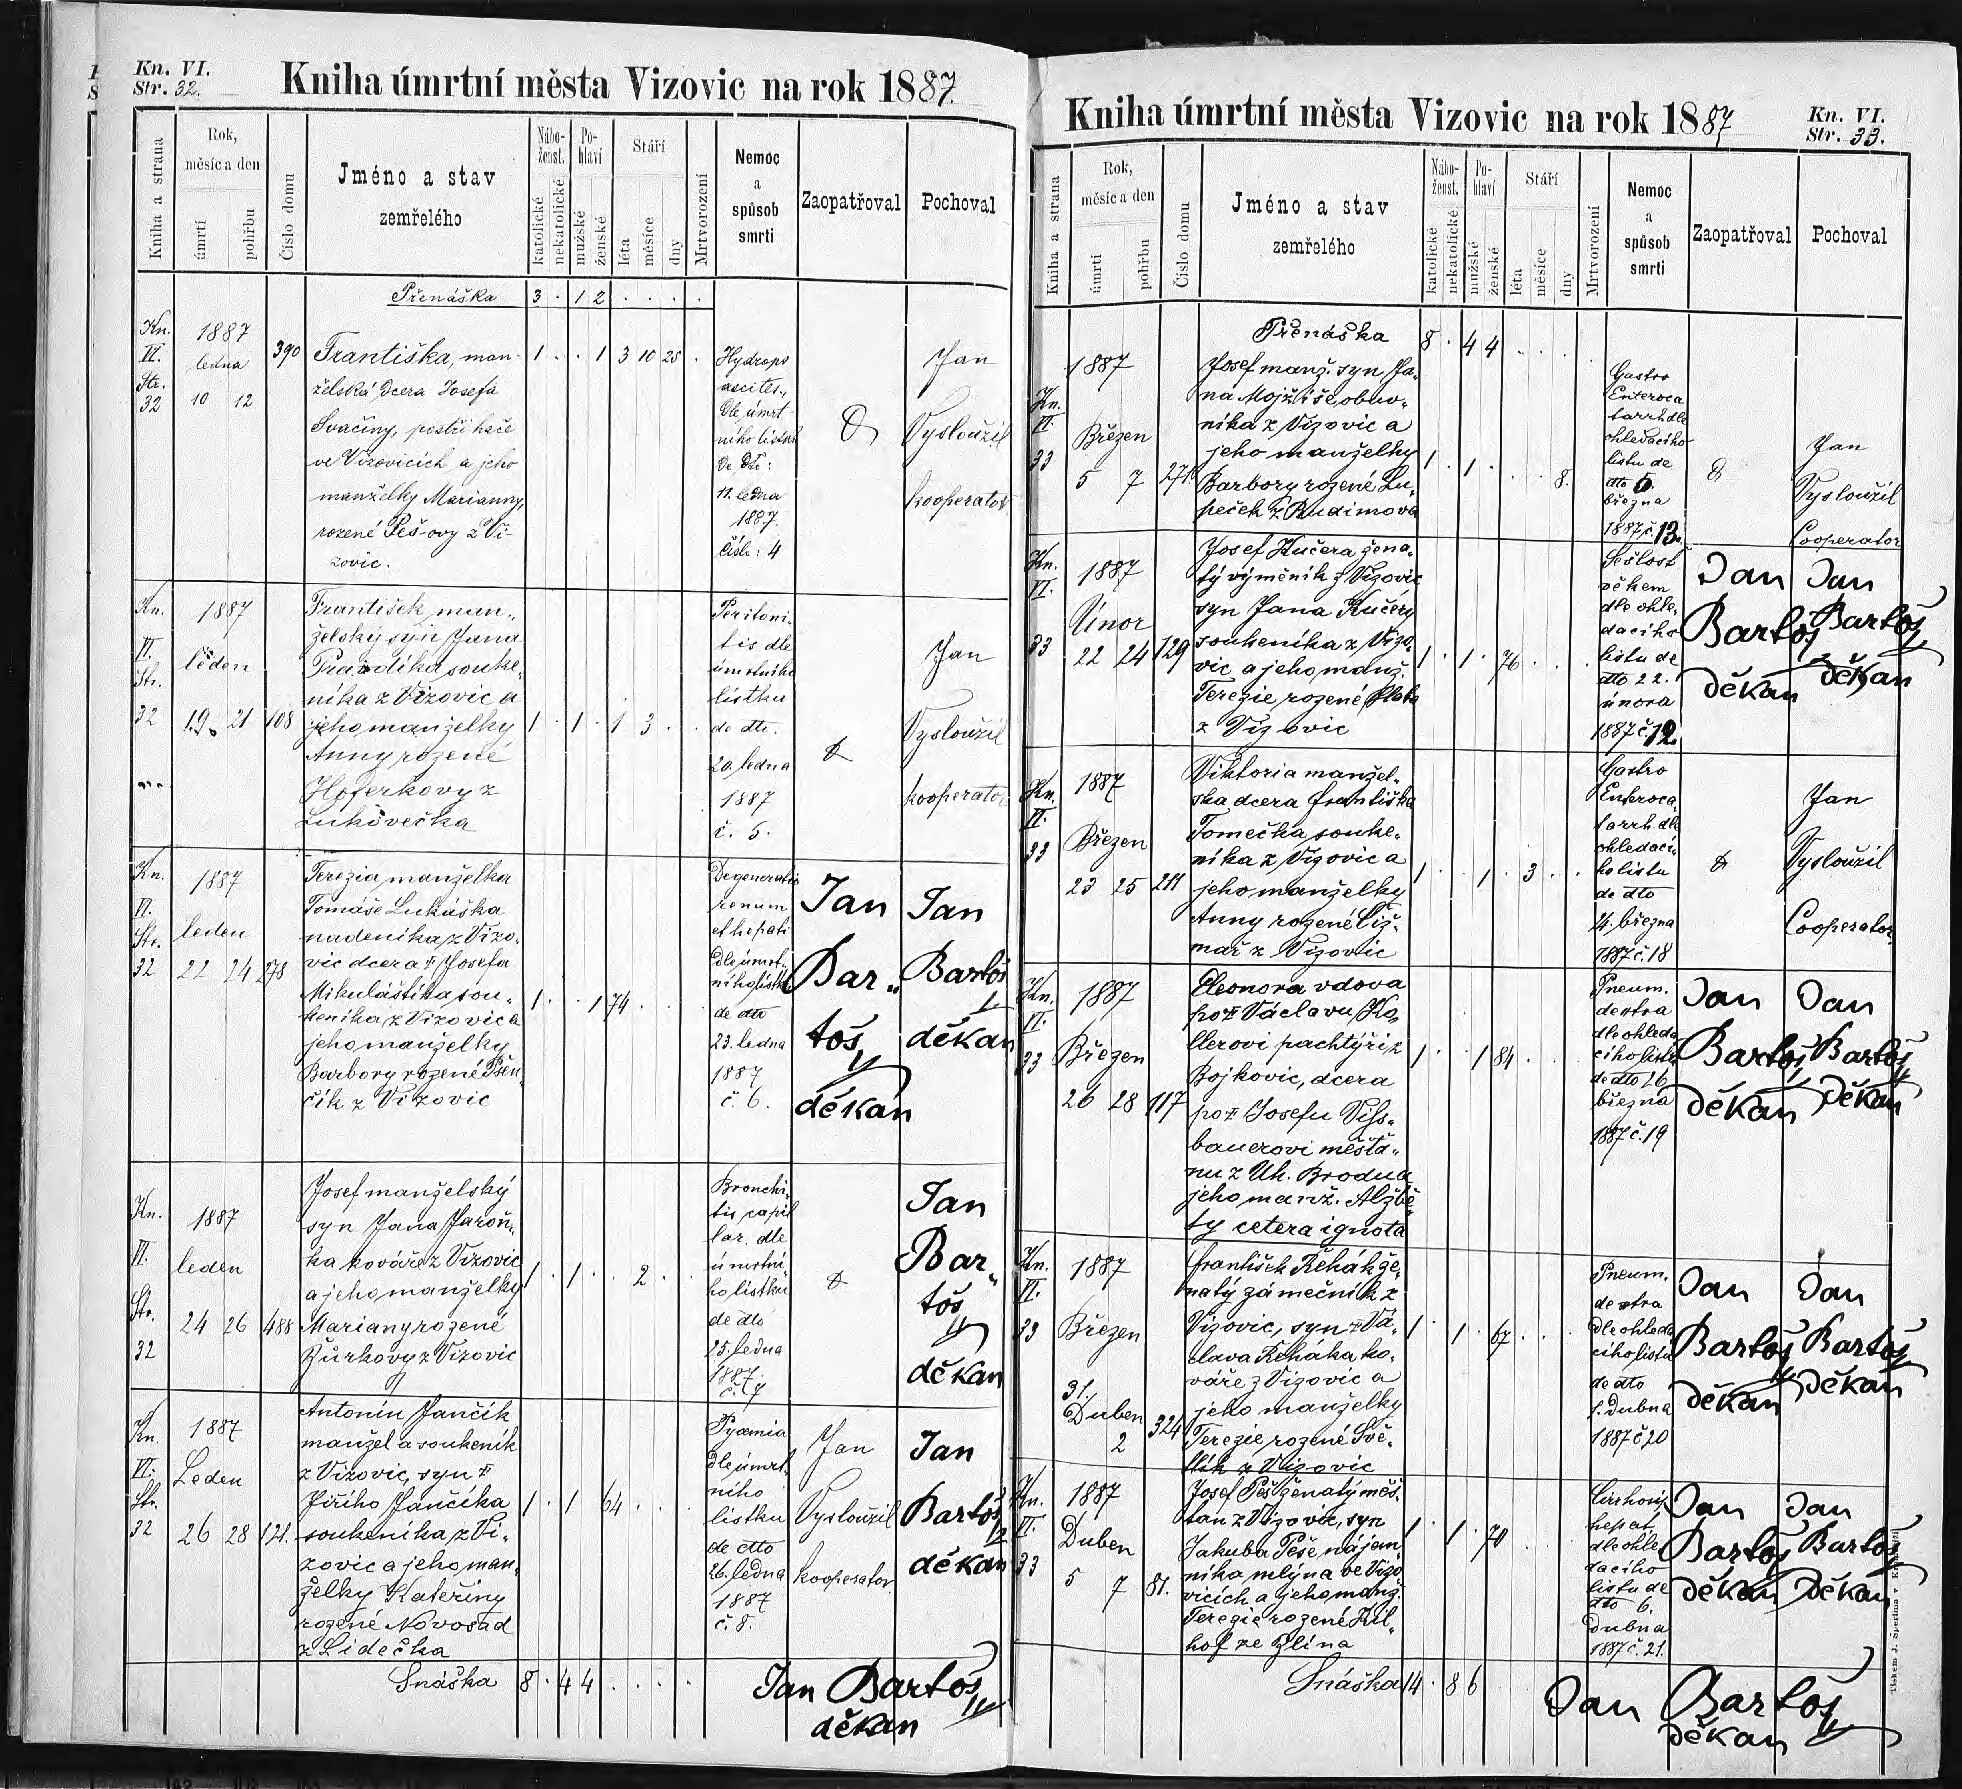 Kn. VI.
Str. 32.
Kniha úmrtní města Vizovic na rok 1887.
Kniha a strana
Rok,
měsíc a den
úmrtí
pohřbu
Číslo domu
Jméno a stav
zemřelého
Nábo-
ženst.
katolické
nekatolické
Po-
hlaví
mužské
ženské
Stáří
léta
měsíce
dny
Mrtvorození
Nemoc
a
spůsob
smrti
Zaopatřoval
Pochoval
Přenáška 3 . 1 2 . . . .
Kn.
VI.
Str.
32
1887
ledna
10 12
390
Františka, man-
želská dcera Josefa
Svačiny, postřihače
ve Vizovicích a jeho
manželky Marianny,
rozené Peš-ovy z Vi-
zovic.
1 . . 1 3 10 25 .
Hydrops
ascites,
Dle úmrt-
ního lístku
de dto:
11. ledna
1887.
Čísl.: 4
Jan
Vysloužil
kooperator
Kn.
VI.
Str.
32
1887
leden
19. 21 108
František man-
želský syn Jana
Prandika souke-
níka z Vizovic a
jeho manželky
Anny rozené
Hoferkovy z
Lukovečka
1 . 1 . 1 3 . .
Peritoni-
tis dle
úmrtního
lístku
de dto.
20. ledna
1887
č. 5.
Jan
Vysloužil
kooperator
Kn.
VI.
Str.
32
1887
leden
22 24 278
Terezia manželka
Tomáše Lukáška
nádeníka z Vizo-
vic dcera † Josefa
Mikuláštíka sou-
keníka z Vizovic a
jeho manželky
Barbory rozené Pšen-
čík z Vizovic
1 . . 1 74 . . .
Degeneratio
renum
et hepati
dle úmrt-
ního lístku
de dto
23. ledna
1887
č. 6.
Jan
Bar-
toš
děkan
Jan
Bartoš
děkan
Kn.
VI.
Str.
32
1887
leden
24 26 488
Josef manželský
syn Jana Jaroň-
ka kováře z Vizovic
a jeho manželky
Mariany rozené
Žůrkovy z Vizovic
1 . 1 . . 2 . .
Bronchi-
tis capil
lar. dle
úmrtní-
ho lístku
de dto
25. ledna
1887
č. 7
Jan
Bar-
toš
děkan
Kn.
VI.
Str.
32
1887
Leden
26 28 121.
Antonín Jančík
manžel a soukeník
z Vizovic, syn †
Jiřího Jančíka
soukeníka z Vi-
zovic a jeho man-
želky Kateřiny
rozené Novosad
z Lidečka
1 . 1 . 64 . . .
Pyæmia
dle úmrt-
ního
lístku
de dto
26. ledna
1887
č. 8.
Jan
Vysloužil
kooperator
Jan
Bartoš
děkan
Snáška 8 . 4 4 . . . .
Jan Bartoš
děkan
Kniha úmrtní města Vizovic na rok 1887
Kn. VI.
Str. 33.
Kniha a strana
Rok,
měsíc a den
úmrtí
pohřbu
Číslo domu
Jméno a stav
zemřelého
Nábo-
ženst.
katolické
nekatolické
Po-
hlaví
mužské
ženské
Stáří
léta
měsíce
dny
Mrtvorození
Nemoc
a
spůsob
smrti
Zaopatřoval
Pochoval
Přenáška 8 . 4 4 . . . .
Kn.
VI.
33
1887
Březen
5 7 271
Josef manž. syn Ja-
na Mojžíše obuv-
níka z Vizovic a
jeho manželky
Barbory rozené Lu-
peček z Rudimova
1 . 1 . . . 8.
Gastro
Enteroca
tarrh dle
ohledacího
listu de
dto 6.
března
1887 č. 13.
Jan
Vysloužil
Cooperator
Kn.
VI.
33
1887
Únor
22 24 129
Josef Kučera žena-
tý výměník z Vizovic
syn Jana Kučery
soukeníka z Vizo-
vic a jeho manž.
Terezie, rozené
z Vizovic
1 . 1 . 76 . . .
Sešlost
věkem
dle ohle-
dacího
listu de
dto 22.
února
1887 č. 12.
Jan
Bartoš
děkan
Jan
Bartoš
děkan
Kn.
VI.
33
1887
Březen
23 25 211
Viktoria manžel-
ská dcera Františka
Tomečka souke-
níka z Vizovic a
jeho manželky
Anny rozené Čiž-
mař z Vizovic
1 . . 1 . 3 . .
Gastro
Enteroca-
tarrh dle
ohledací-
ho listu
de dto
24. března
1887 č. 18
Jan
Vysloužil
Cooperator
Kn.
VI.
33
1887
Březen
26 28 117
Eleonora vdova
po † Václavu Ko-
llerovi pachtýři z
Bojkovic, dcera
po † Josefu Viss-
bauerovi měšťa-
nu z Uh. Brodu a
jeho manž. Alžbě-
ty cetera ignota
1 . . 1 84 . . .
Pneum.
dextra
dle ohleda
cího listu
de dto 26
března
1887 č. 19
Jan
Bartoš
děkan
Jan
Bartoš
děkan
Kn.
VI.
33
1887
Březen
31.
Duben
2
324
František Řehák že-
natý zámečník z
Vizovic, syn † Vá-
clava Řeháka ko-
váře z Vizovic a
jeho manželky
Terezie rozené Svě-
tlík z Vizovic
1 . 1 . 67 . . .
Pneum.
dextra
dle ohleda
cího listu
de dto
1. dubna
1887 č 20
Jan
Bartoš
děkan
Jan
Bartoš
děkan
Kn.
VI.
33
1887
Duben
5 7 81.
Josef Peš ženatý měš-
tan z Vizovic, syn
Jakuba Peše nájem-
níka mlýna ve Vizo-
vicích a jeho manž.
Terezie rozené Kil-
hof ze Zlína
1 . 1 . 70 . . .
Cirrhosis
hepat.
dle ohle
dacího
listu de
dto 6.
dubna
1887 č. 21.
Jan
Bartoš
děkan
Jan
Bartoš
děkan
Snáška 14 . 8 6
Jan Bartoš
děkan